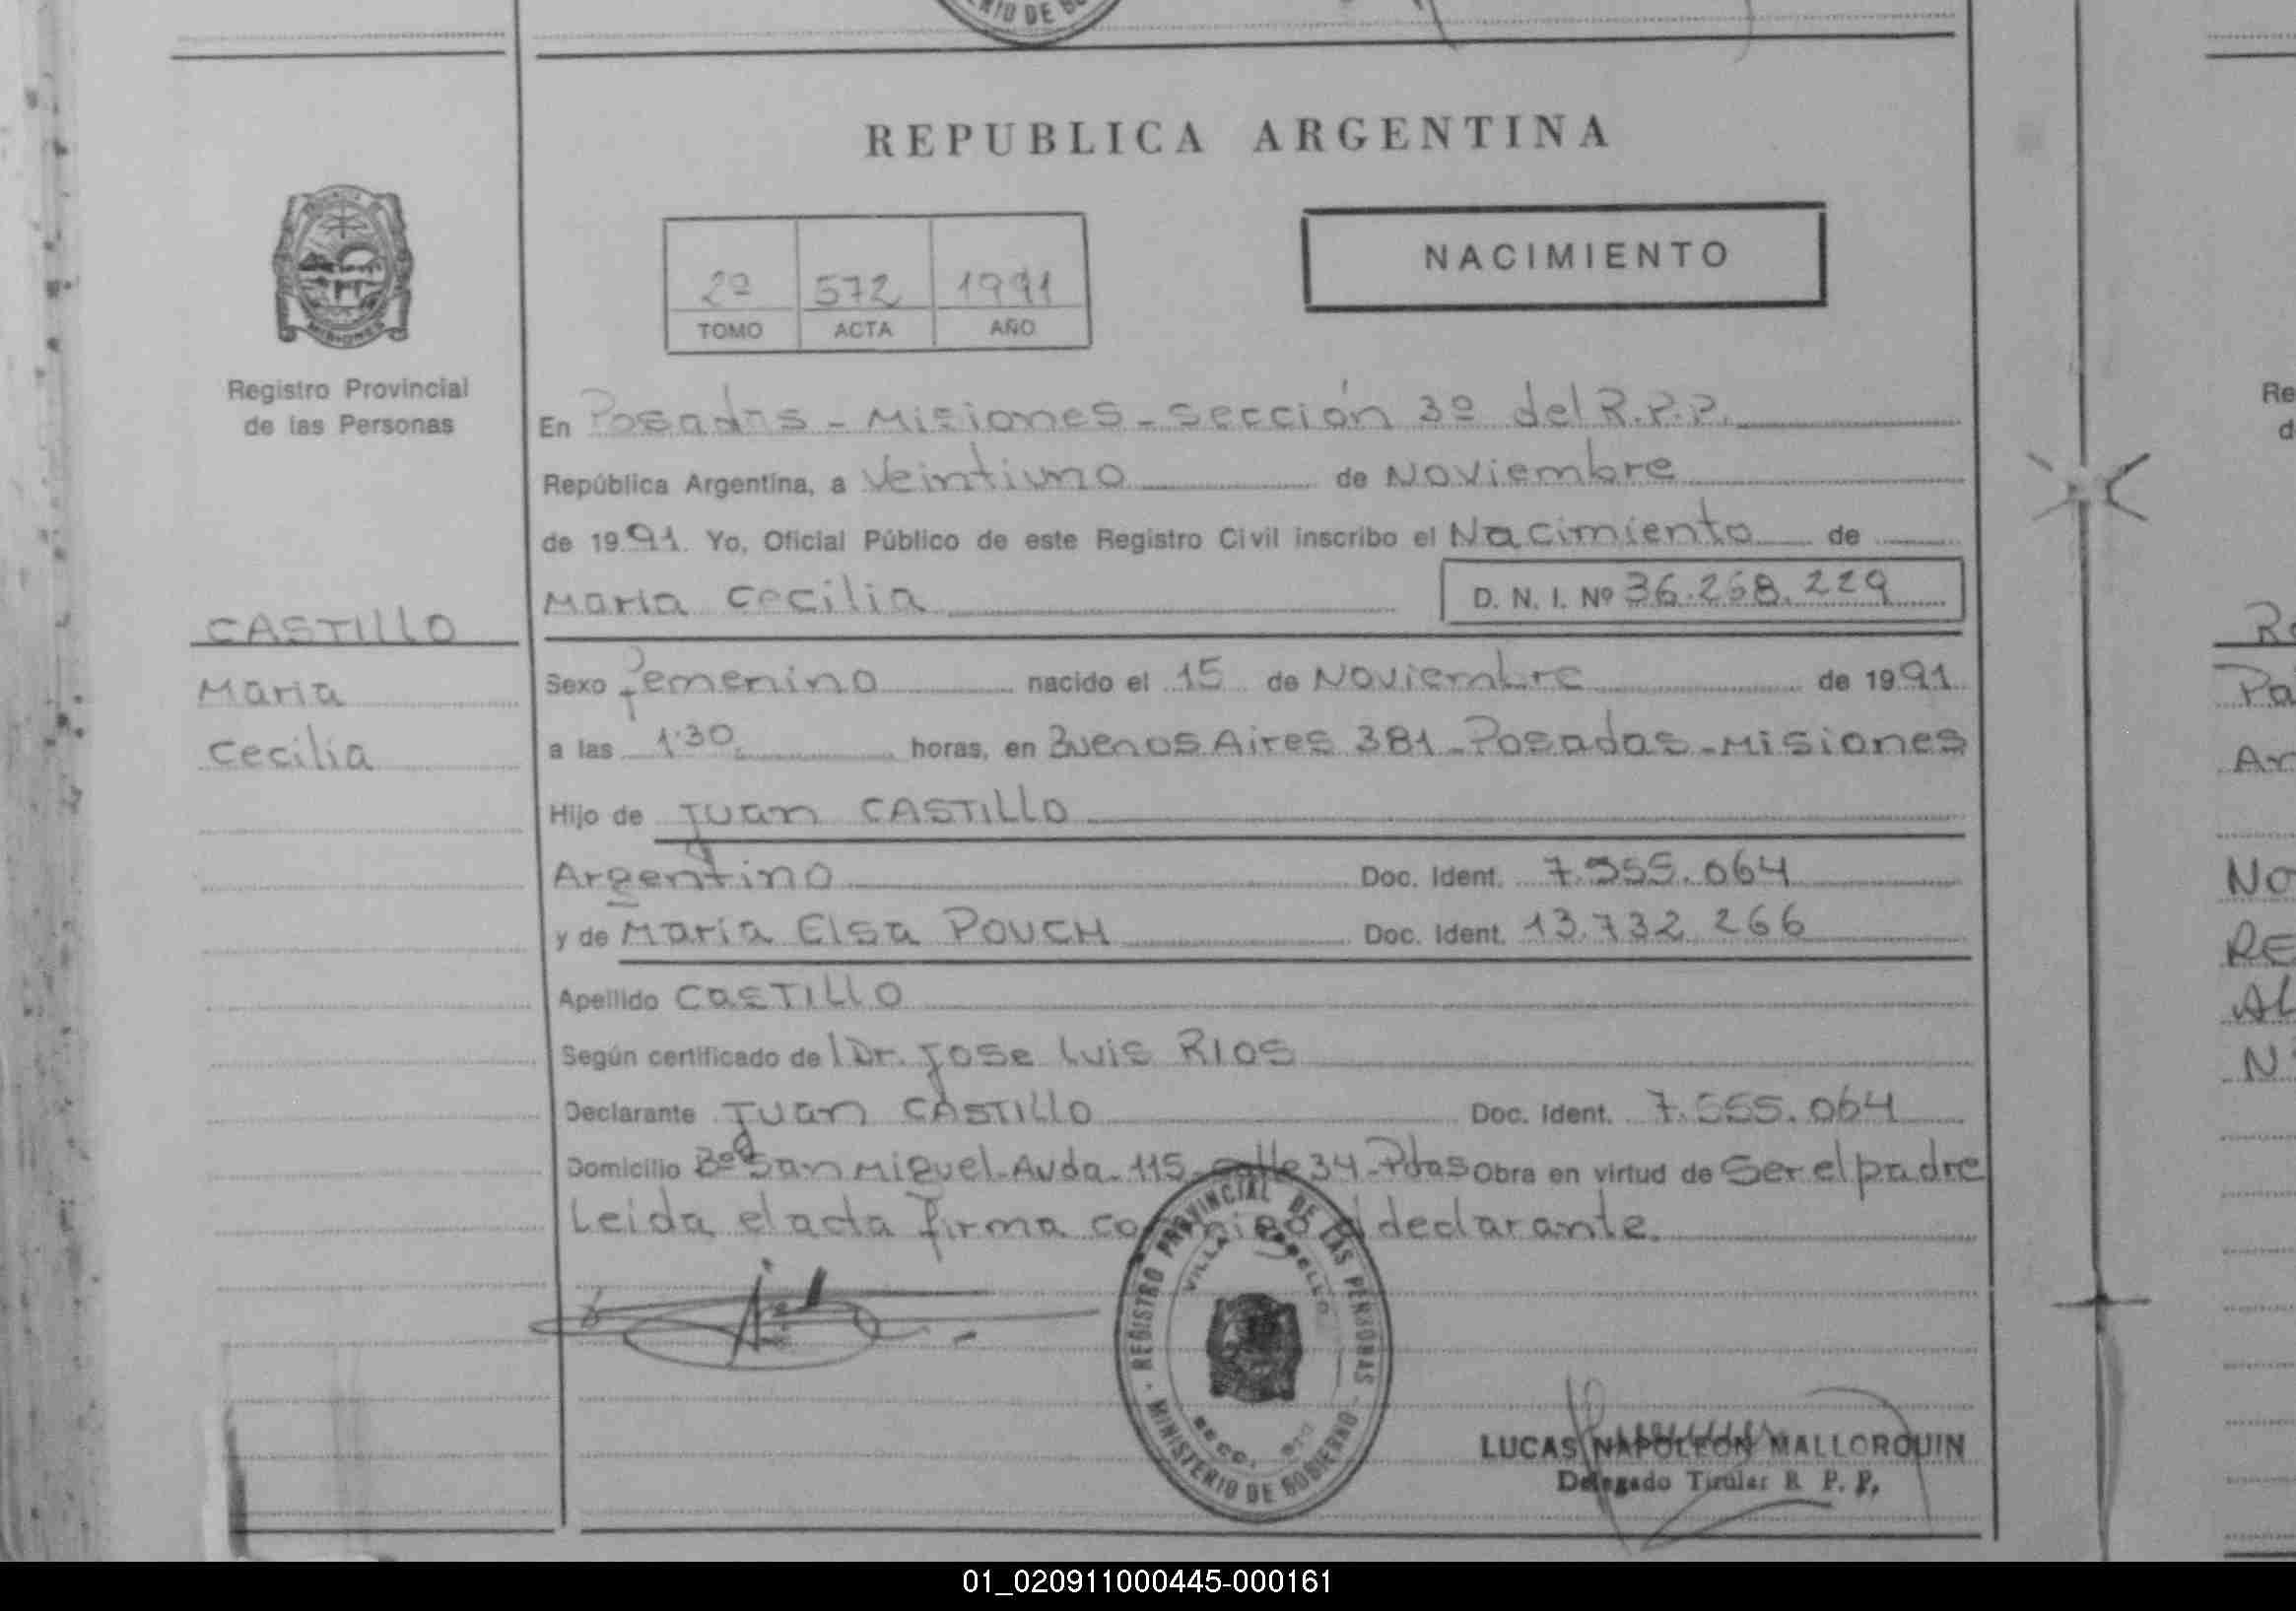 RIO DE
REPUBLICA ARGENTINA
NACIMIENTO
2º 572 1991
TOMO ACTA AÑO
MISIONES
Registro Provincial
de las Personas
En Posadas - Misiones - Sección 3º del R.P.P.
República Argentina, a Veintiuno de Noviembre
de 1991. Yo, Oficial Público de este Registro Civil inscribo el Nacimiento de
Maria Cecilia D. N. I. Nº 36.268.229
CASTILLO
Maria
Cecilia
Sexo femenino nacido el 15 de Noviembre de 1991
a las 1:30 horas, en Buenos Aires 381 - Posadas - Misiones
Hijo de Juan CASTILLO
Argentino Doc. Ident. 7.555.064
y de Maria Elsa POUCH Doc. Ident. 13.732.266
Apellido CASTILLO
Según certificado de l Dr. Jose Luis RIOS
Declarante Juan CASTILLO Doc. Ident. 7.555.064
Domicilio Bº San Miguel - Avda. 115 - calle 34 - Pdas Obra en virtud de Ser el padre
Leida el acta firma conmigo el declarante.
REGISTRO PROVINCIAL DE LAS PERSONAS
VILLA
MINISTERIO DE GOBIERNO
LUCAS NAPOLEON MALLORQUIN
Delegado Titular R. P. P.
Re
d
Ro
Pa
Ar
No
RE
AL
N
01_020911000445-000161